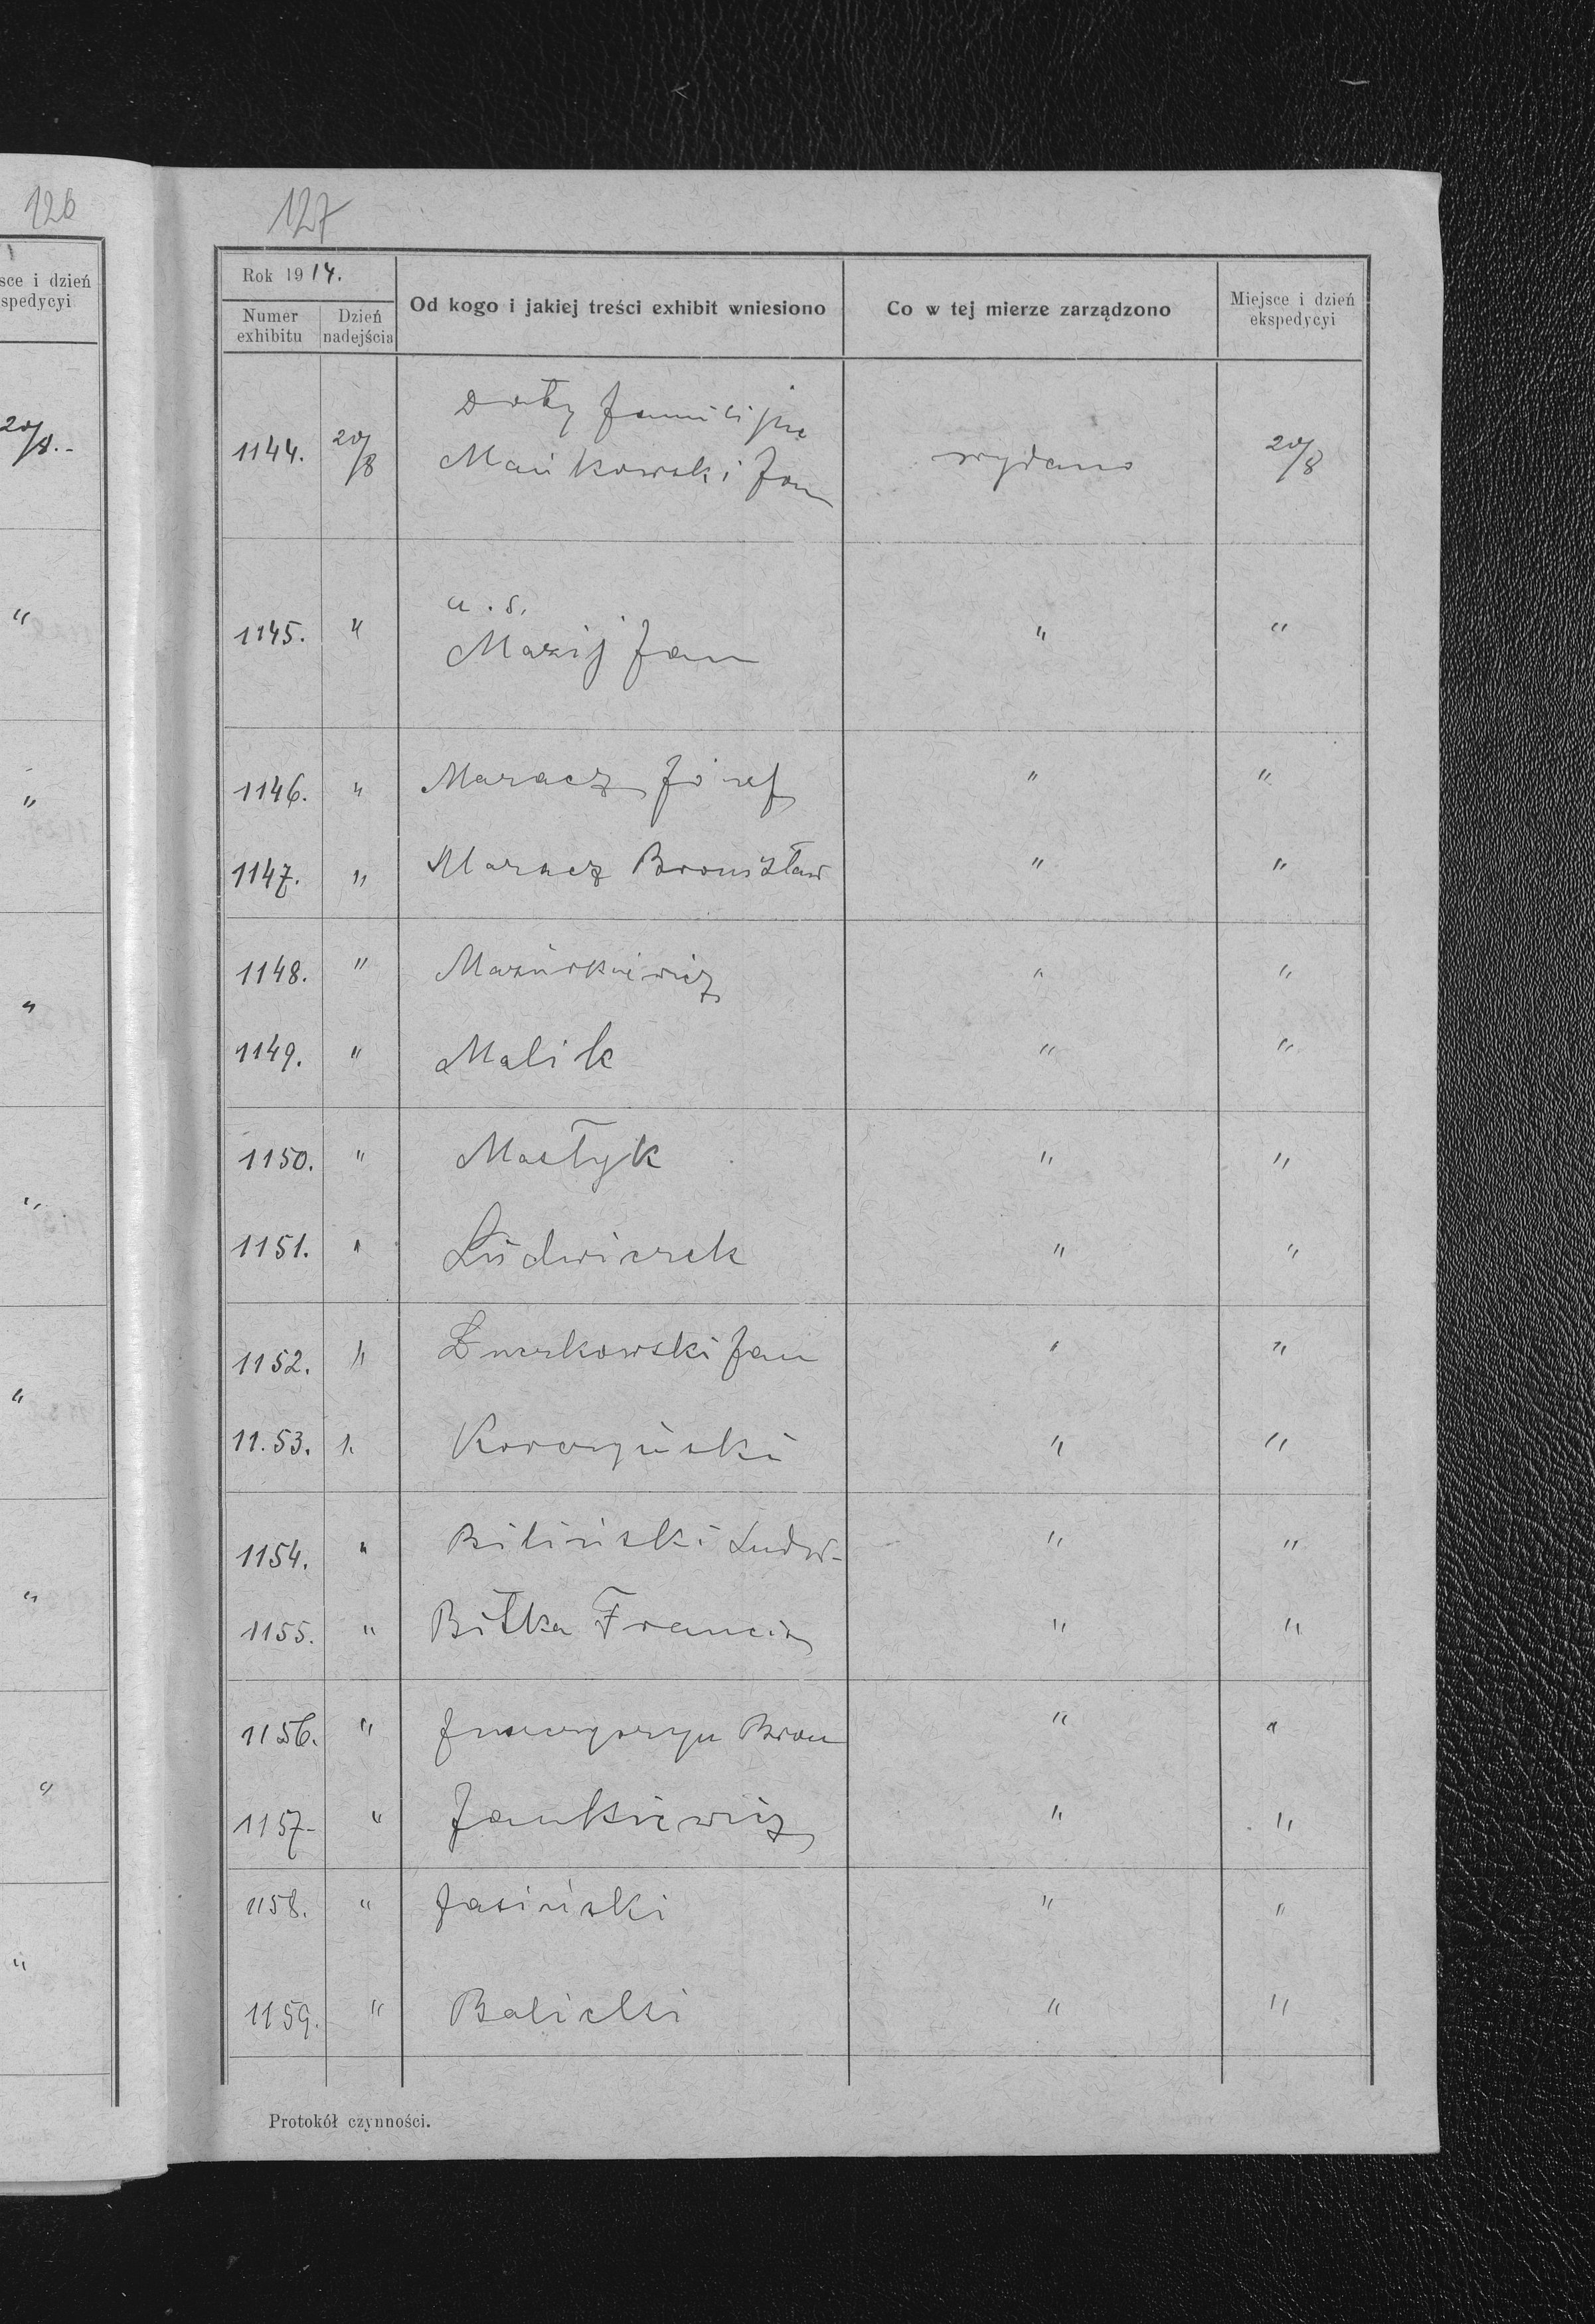 126
sce i dzień
spedycyi
20/8.-
"
"
"
"
"
"
"
"
127
Rok 1914.
Numer exhibitu
Dzień nadejścia
Od kogo i jakiej treści exhibit wniesiono
Co w tej mierze zarządzono
Miejsce i dzień ekspedycyi
Daty familijne
1144. 20/8 Mańkowski Jan wydano 20/8
a. s.
1145. " Mazij Jan " "
1146. " Maracz Józef " "
1147. " Maracz Bronisław " "
1148. " Mazurkiewicz " "
1149. " Malik " "
1150. " Mastyk " "
1151. " Ludwiczek " "
1152. " Jan " "
11.53. " Korczyński " "
1154. " Biliński Ludw- " "
1155. " Bitka " "
1156. " Bron " "
1157- " Jankiewicz " "
1158. " Jasiński " "
1159. " Balicki " "
Protokół czynności.